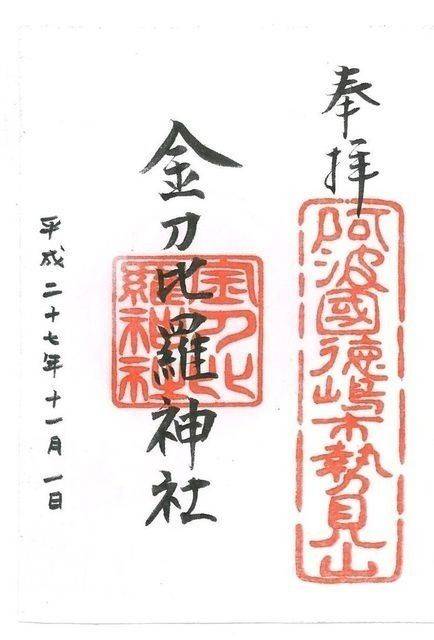 奉拝
阿波國徳嶋市勢見山
金刀比羅神社
金刀比
羅神社
平成二十七年十一月一日